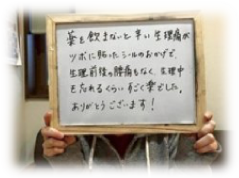 薬を飲まないと辛い生理痛が
ツボに貼ったシールのおかげで、
生理前後の腰痛もなく、生理中
を忘れるくらいすごく楽でした。
ありがとうございます！